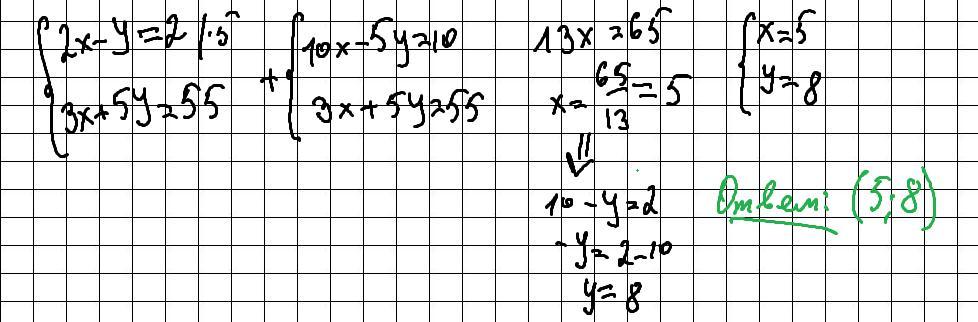 2x-y=2 |·5
3x+5y=55
+
10x-5y=10
3x+5y=55
13x=65
x=65/13=5
⇓
10-y=2
-y=2-10
y=8
x=5
y=8
Ответ: (5;8)